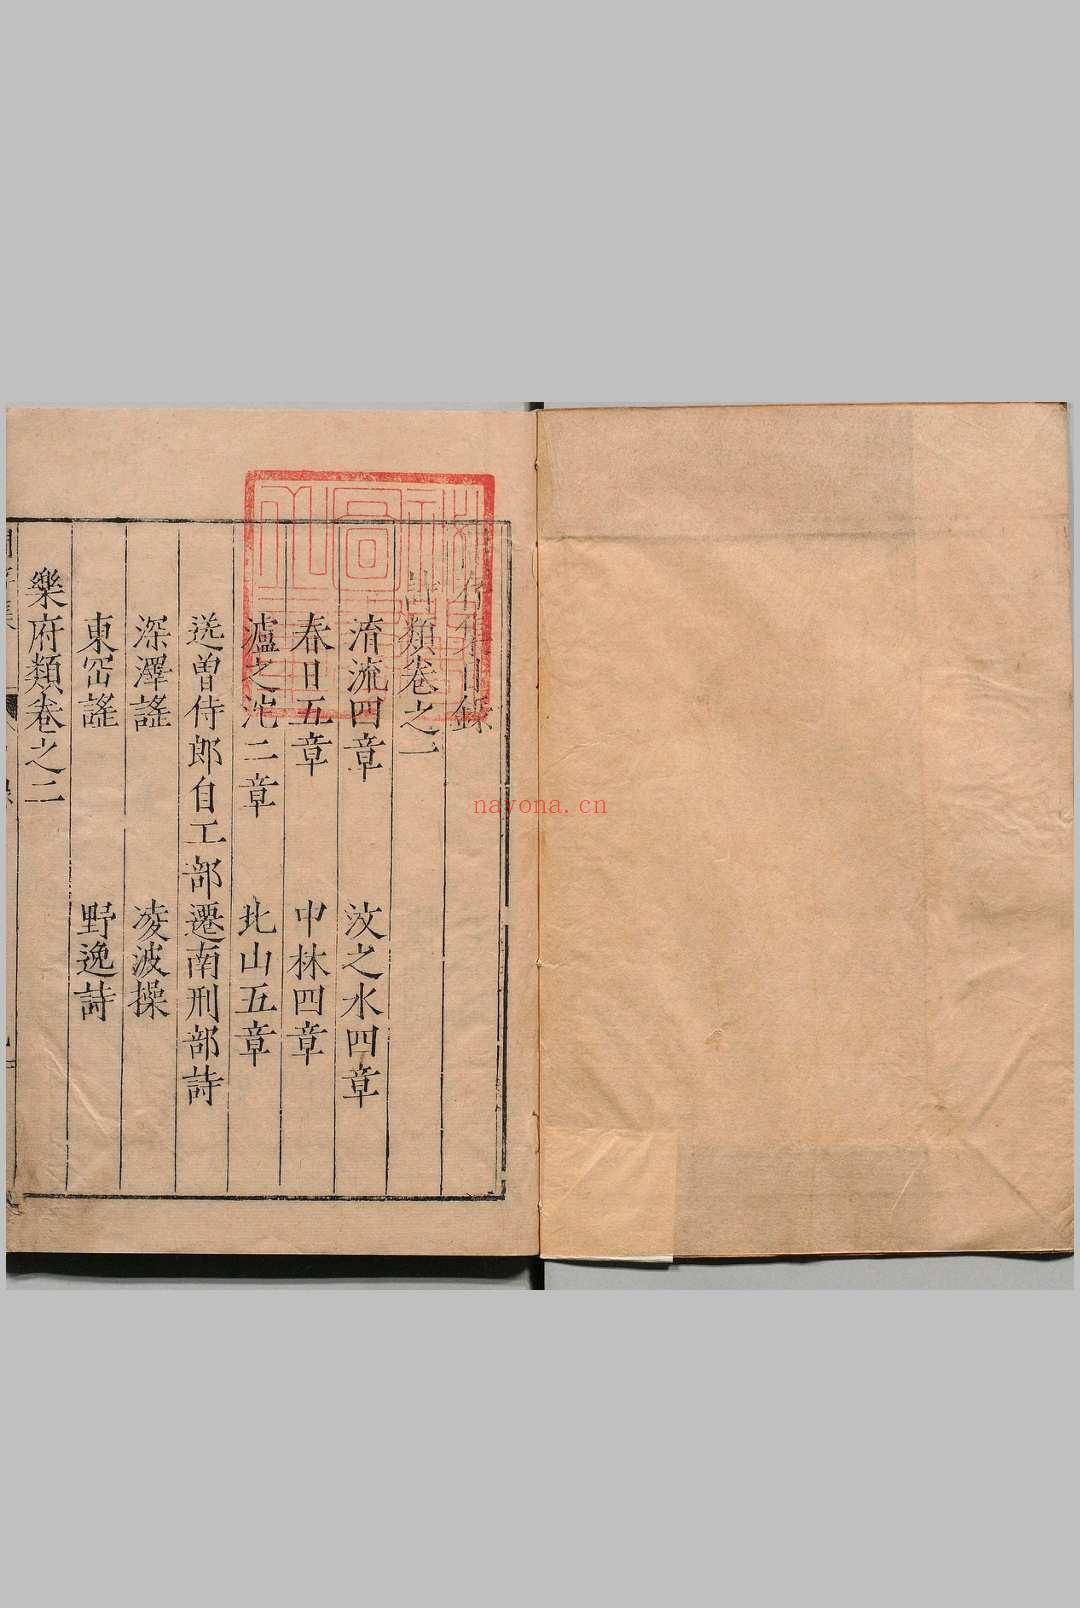 存集目錄
詩類卷之一
淯流四章 汶之水四章
春日五章 中林四章
瀘之沱二章 北山五章
送曽侍郎自工部遷南刑部詩
深澤謠 凌波操
東窑謠 野逸詩
樂府類卷之二
nayona.cn